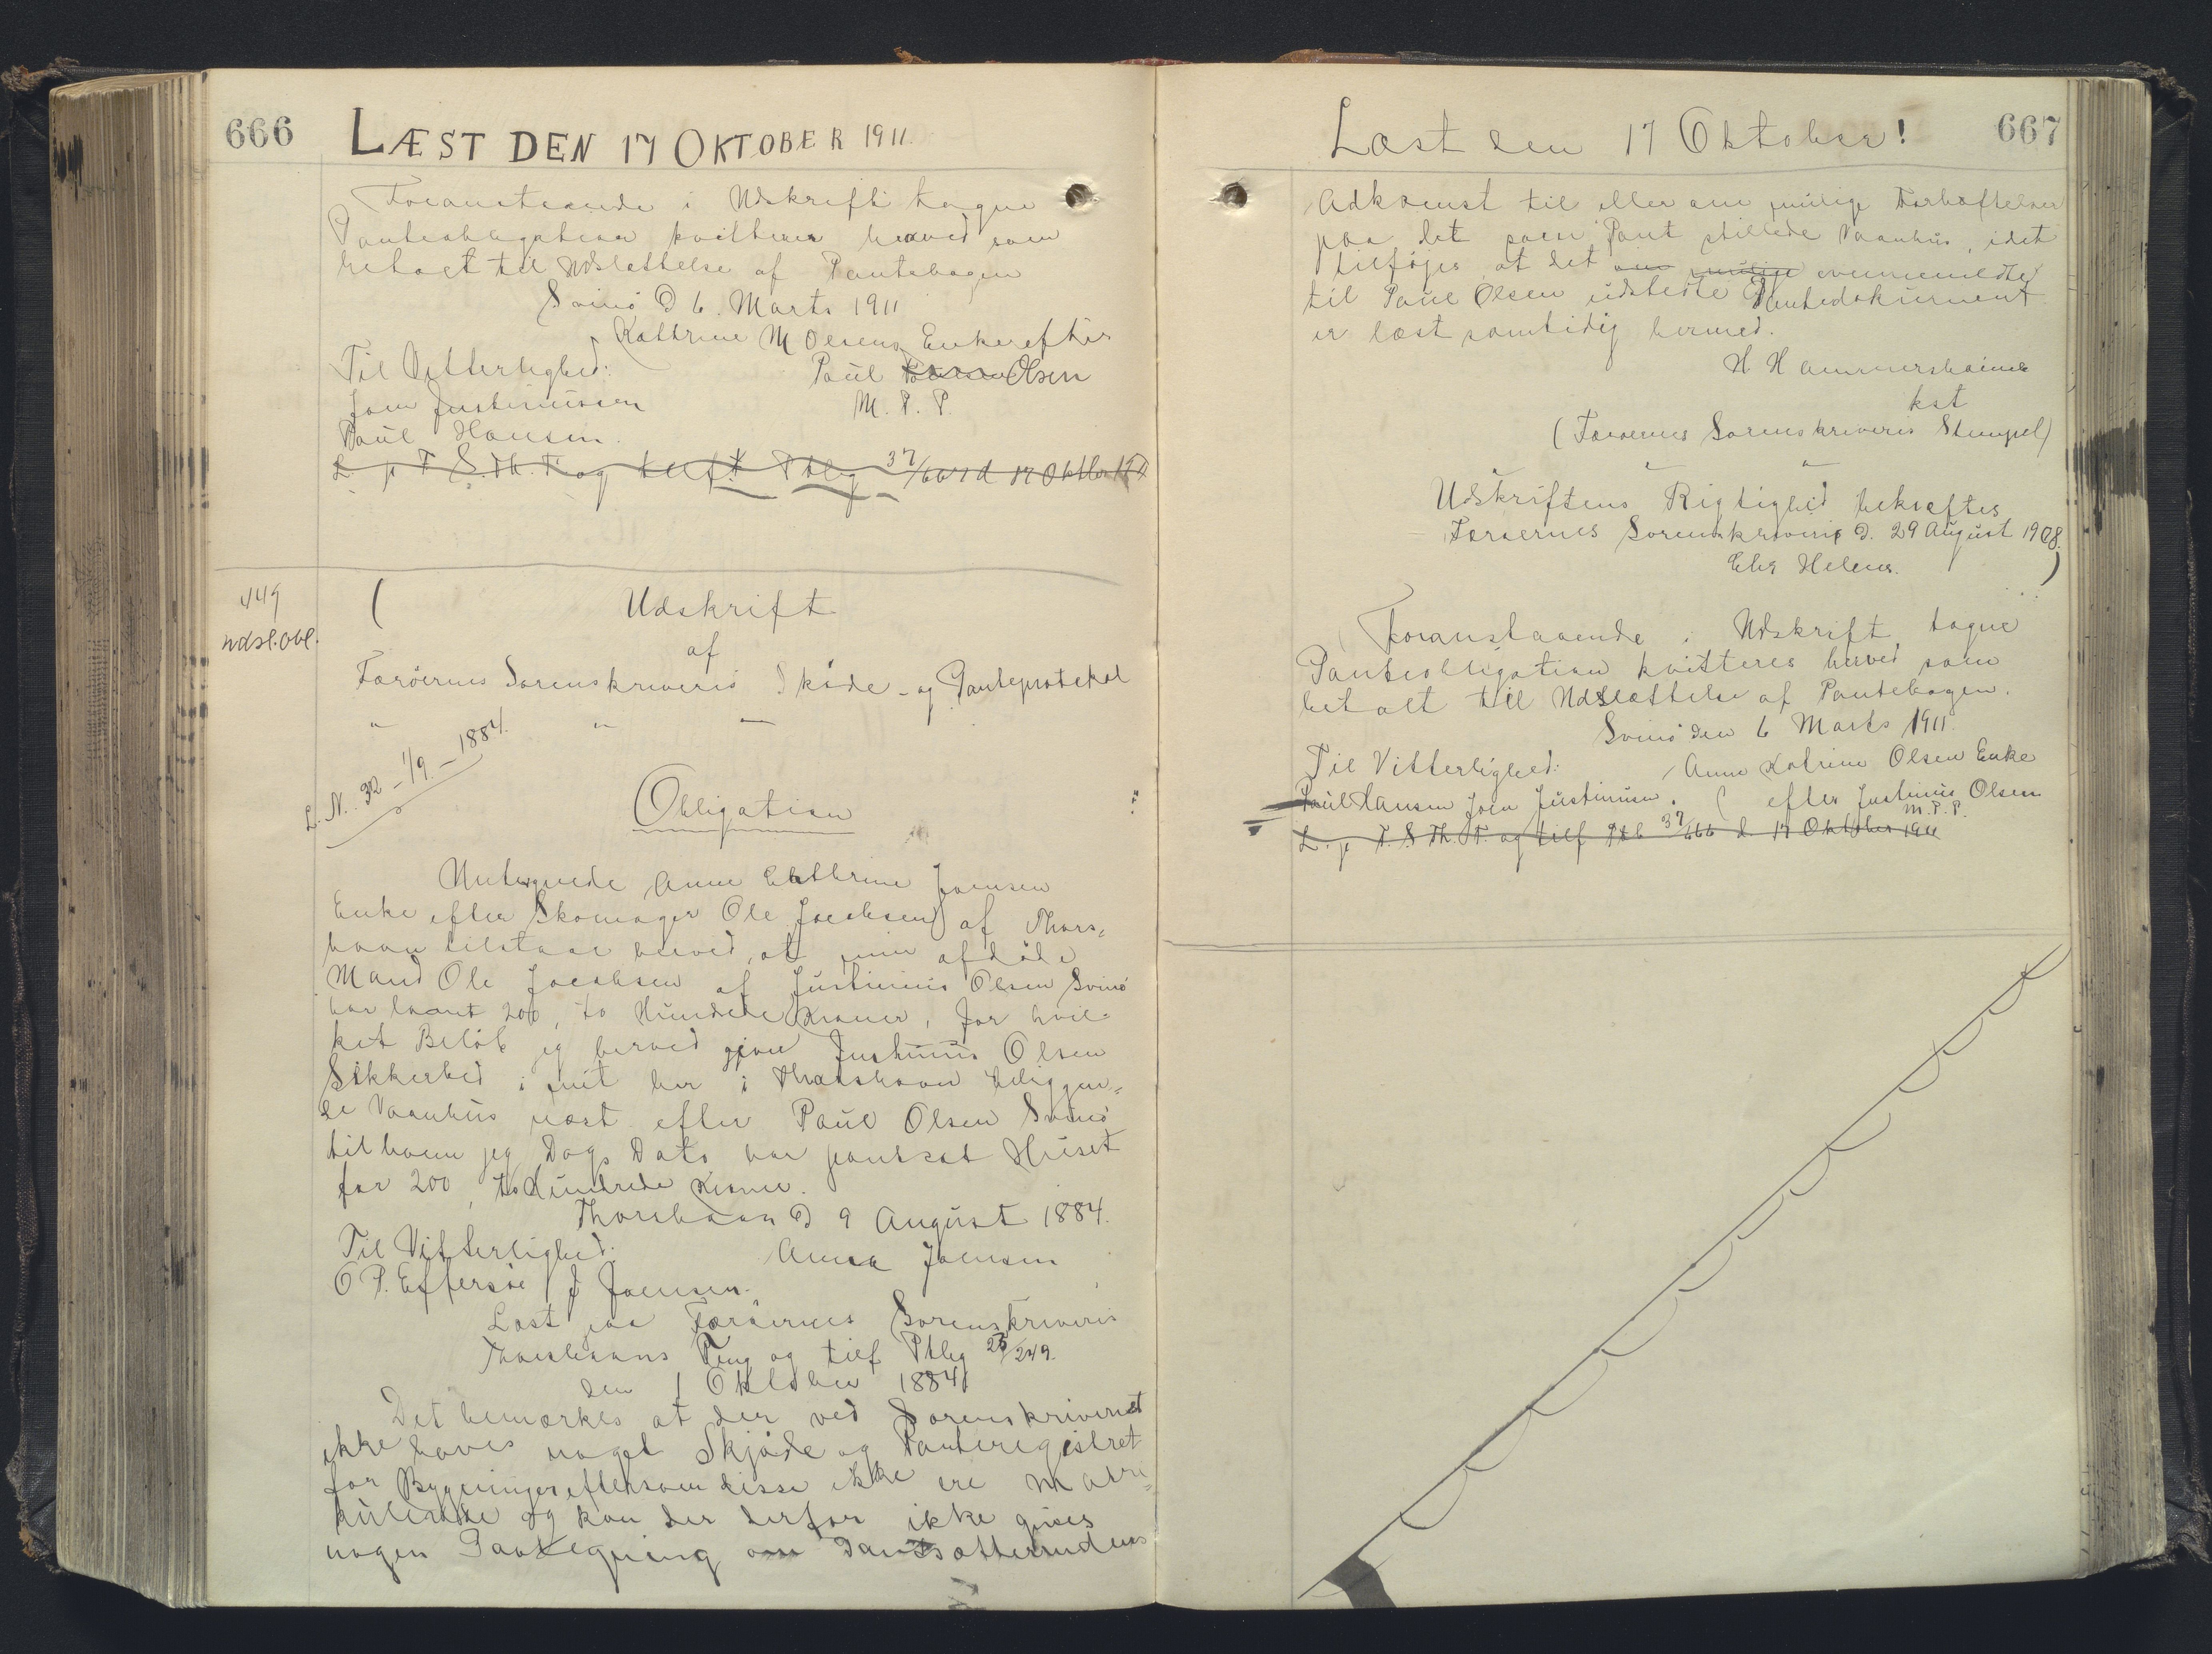 666 LÆST DEN 17 OKTOBER 1911.
Foranstaaende i Udskrift tagne
Panteobligation kvitteres herved som
betalt til Udslettelse af Pantebogen
Svinö D 6. Marts 1911
Kathrine M Olsens Enke efter
Til Vitterlighed: Paul Olsen
Joen Justinussen M. P. P.
Paul Hansen.
L. p F. S. Th. T. og tilf. Ptbg 37/661 d 17 Oktbr 1911
449
Udsl. Obl.
( Udskrift
af
Færöernes Sorenskriveris Sköde- og Panteprotokol
" " "
L. N. 32 - 1/9. - 1884.
Obligation
Undertegnede Anne Cathrine Joensen
Enke efter Skomager Ole Jacobsen af Thors-
havn tilstaar herved, at min afdöde
Mand Ole Jacobsen af Justinus Olsen Svinö
har laant 200, to Hundrede Kroner, for hvil-
ket Belöb jeg herved giver Justinus Olsen
Sikkerhed i mit her i Thorshavn beliggen-
de Vaanhus næst efter Paul Olsen Svinö
til hvem jeg Dags Dato har pantsat Huset
for 200, to Hundrede Kroner.
Thorshavn D 9 August 1884.
Til Vitterlighed: Anna Joensen
O P. Effersöe / J Joensen.
Læst paa Færöernes Sorenskriveris
Thorshavns Ting og tilf Ptbg 23/249.
den 1 Oktober 1884
Det bemærkes at der ved Sorenskriveriet
ikke haves noget Skjöde og Panteregistret
for Bygninger eftersom disse ikke ere Matri-
kulerede og kan der derfor ikke gives
nogen Paategning om Pantsætterindens
Læst den 17 Oktober! 667
Adkomst til eller om mulige Forhæftelser
paa det som Pant stillede Vaanhus, idet
tilföjes at det om mulige ovenmeldte
til Paul Olsen udstedte Pantedokument
er læst samtidig hermed.
H Hammershaimb
kst
(Færoernes Sorenskriveris Stempel)
" "
Udskriftens Rigtighed bekræftes
Færöernes Sorenskriveri D. 29 August 1908.
Chr Helms. )
Foranstaaende i Udskrift tagne
Panteobligation kvitteres herved som
betalt til Udslættelse af Pantebogen.
Svinö den 6 Marts 1911.
Til Vitterlighed: Anne Katrine Olsen Enke
Paul Hansen Joen Justinusen. ( efter Justinus Olsen
M. P. P.
L. p F. S Th. T. og tilf Ptb 37/666 d. 17 Oktober 1911